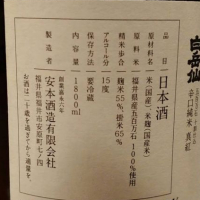 品目 日本酒
原材料名 米(国産)、米麹(国産米)
原料米 福井県産五百万石100%使用
精米歩合 麹米55%、掛米65%
アルコール分 15度
保存方法 要冷蔵
内容量 1800ml
製造者 創業嘉永六年
安本酒造有限会社
福井県福井市安原町七ノ四
お酒は二十歳を過ぎてから適量を
白岳仙
辛口純米